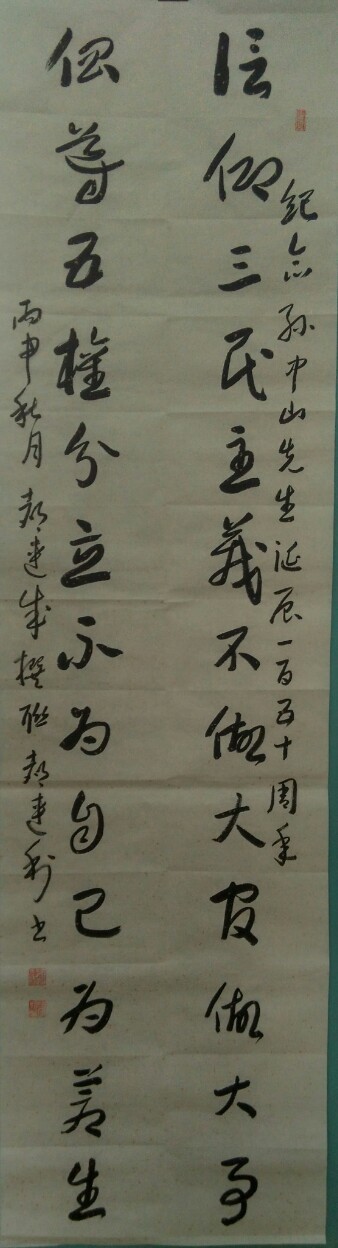 纪念孙中山先生诞辰一百五十周年
信仰三民主義不做大官做大事
倡導五權分立不为自己为蒼生
丙申秋月 郝建成撰联 郝建利书